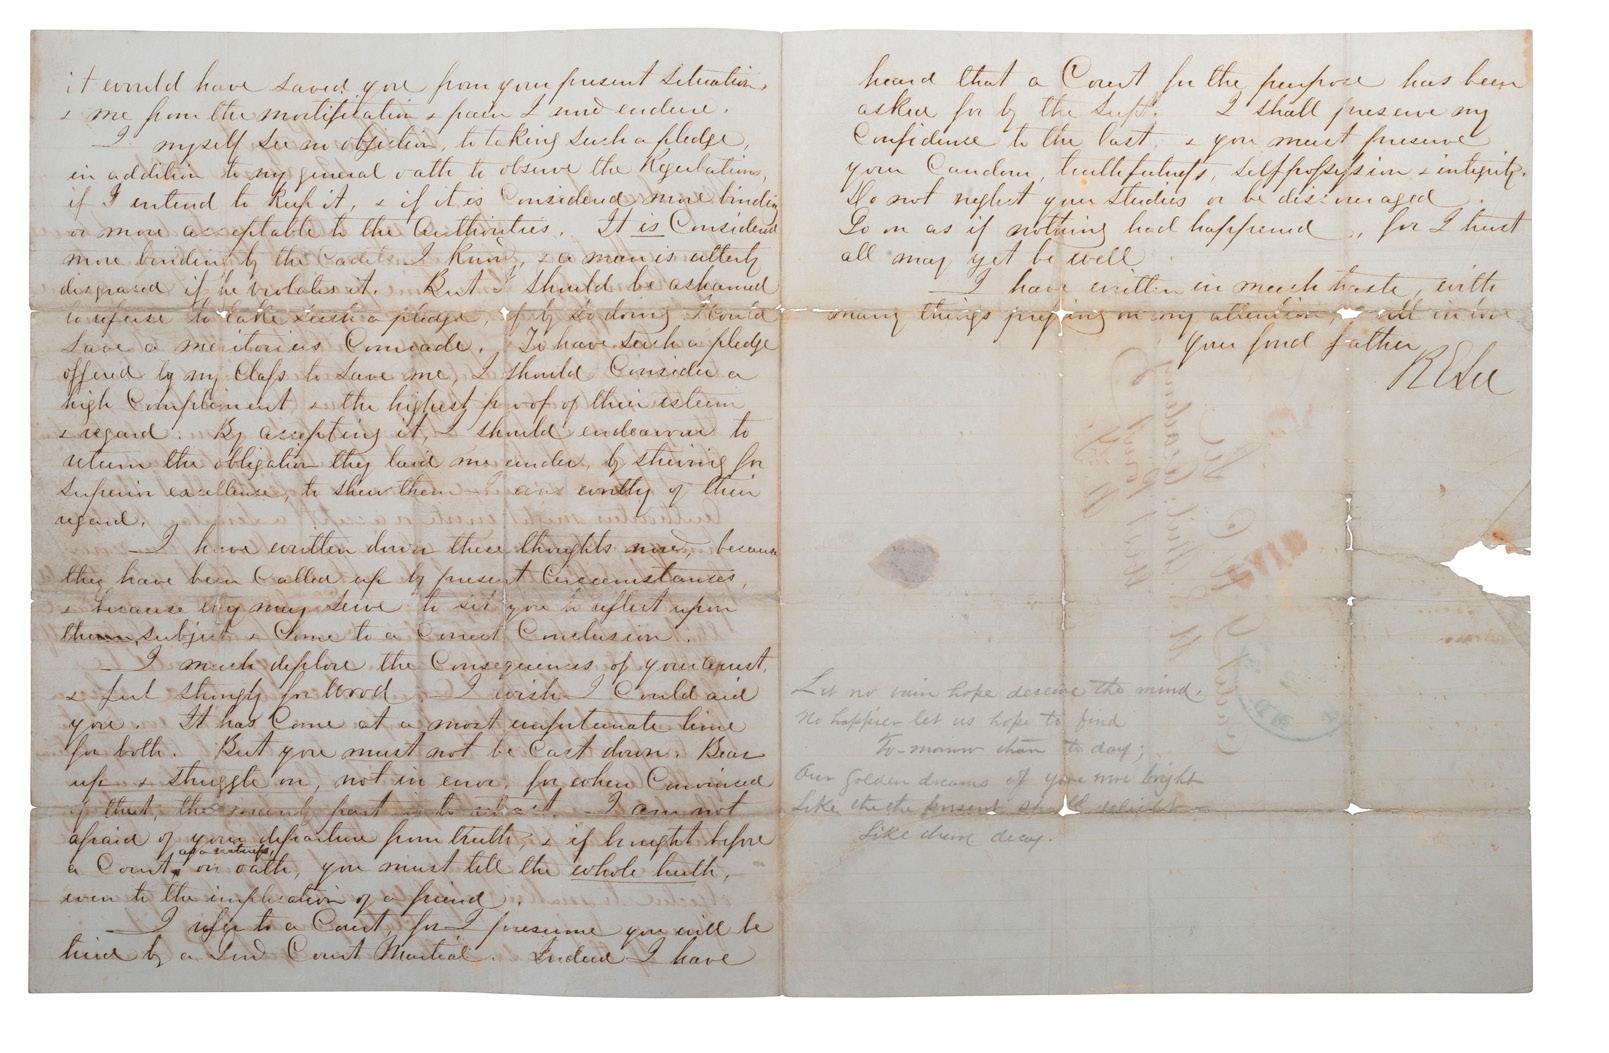 it would have saved you from your present situation,
& me from the mortification & pain I now endure.
I myself see no objection, to taking such a pledge,
in addition to my general oath to observe the Regulations,
if I intend to keep it, & if it is Considered more binding
or more acceptable to the Authorities. It is Considered
more binding by the Cadets I know, & a man is utterly
disgraced if he violates it. But I should be ashamed
to refuse to take such a pledge, if by so doing I could
save a meritorious Comrade. To have such a pledge
offered by my Class to save me, I should Consider a
high Compliment & the highest proof of their esteem
& regard. By accepting it, I should endeavour to
return the obligation they laid me under, by striving for
superior excellence, to shew them I was worthy of their
regard.
I have written down these thoughts now, because
they have been Called up by present Circumstances,
& because they may serve to set you to reflect upon
subject & Come to a Correct Conclusion.
I much deplore the Consequences of your arrest,
& feel strongly for Wood. I wish I Could aid
you. It has Come at a most unfortunate time
for both. But you must not be Cast down. Bear
up & struggle on, not in error, for when Convinced
of that, the manly part is to . I am not
afraid of your departure from truth, & if brought before
a Court, as a witness, on oath, you must tell the whole truth,
even to the implication of a friend.
I refer to a Court, for I presume you will be
tried by a Genl Court Martial. Indeed I have
heard that a Court for the purpose has been
asked for by the Supt. I shall preserve my
Confidence to the last, & you must preserve
your Candour, truthfulness, self possession & integrity.
Do not neglect your studies or be discouraged.
Go on as if nothing had happened, for I trust
all may yet be well
I have written in much haste, with
many things pressing on my attention, all in love
Your fond father
R E Lee
Let no vain hope deceive the mind.
No happier let us hope to find
To-morrow than to day;
Our golden dreams of yore were bright
Like the present shall delight
Like them decay.